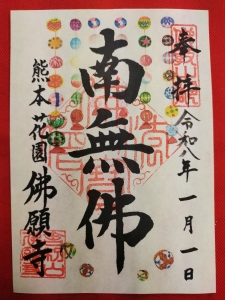 奉拝
令和八年一月一日
南無佛
熊本花園
佛願寺